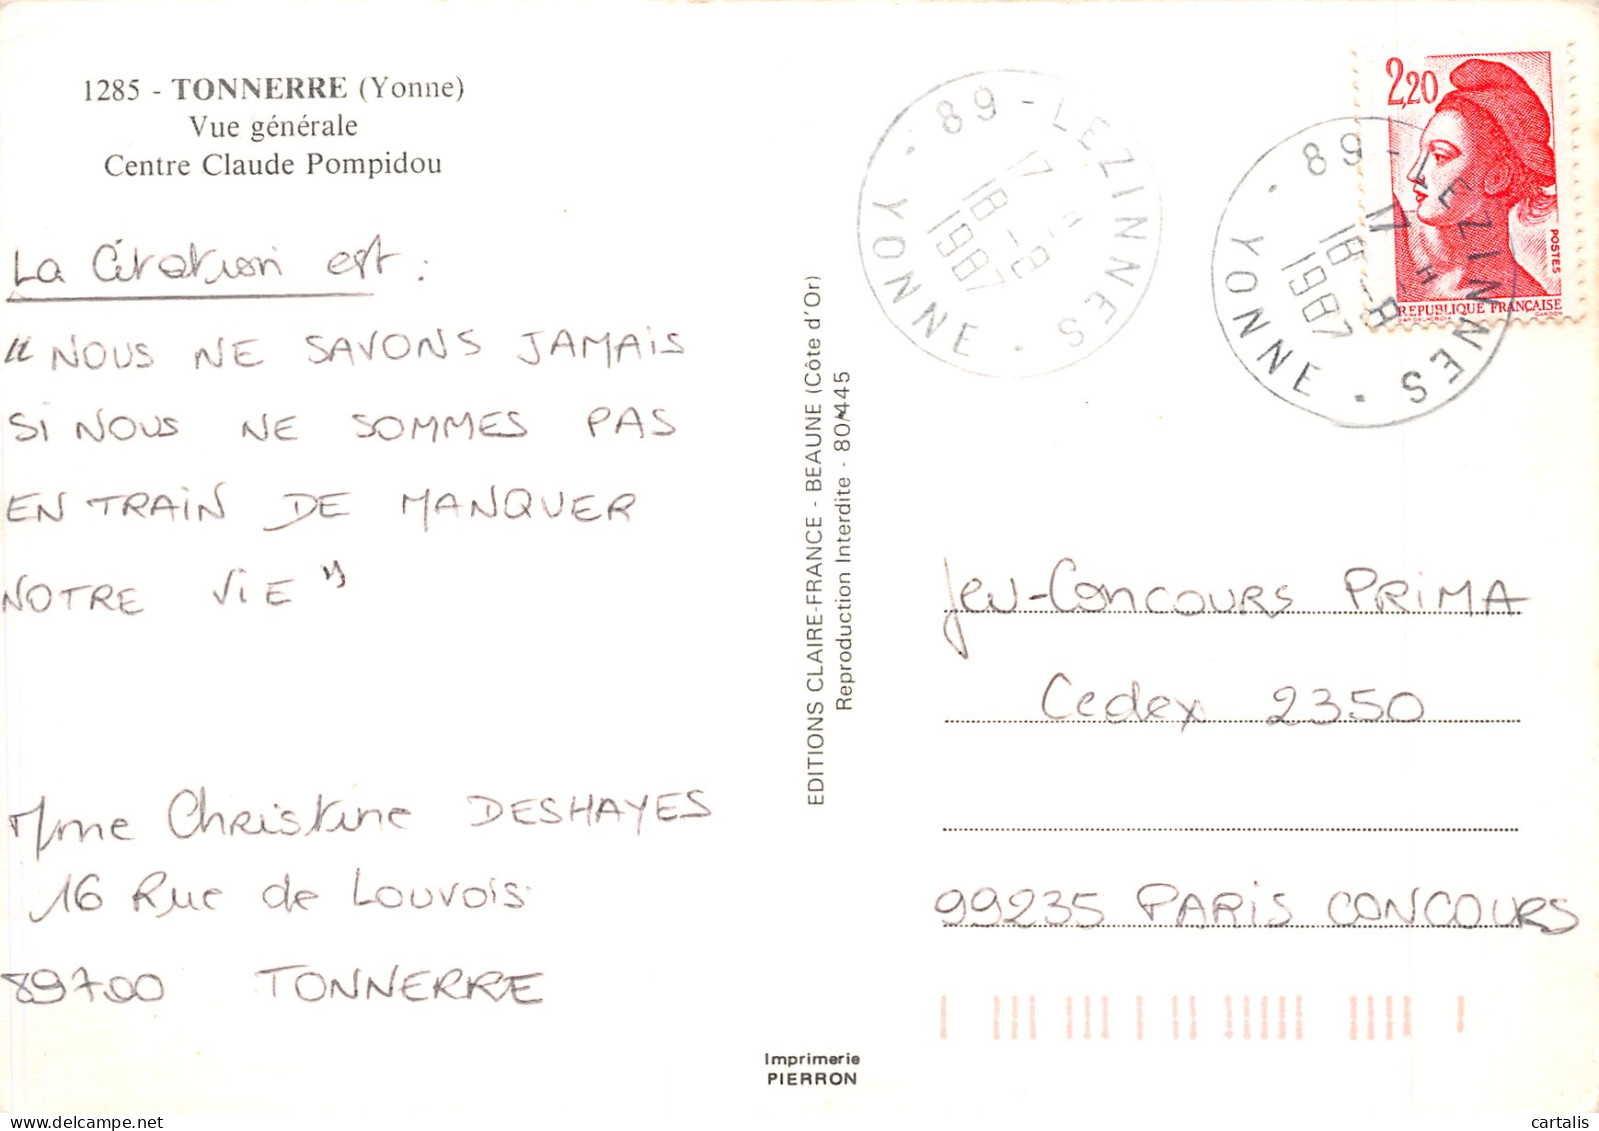 1285 - TONNERRE (Yonne)
Vue générale
Centre Claude Pompidou
La Citation est :
" NOUS NE SAVONS JAMAIS
SI NOUS NE SOMMES PAS
EN TRAIN DE MANQUER
NOTRE VIE "
Mme Christine DESHAYES
16 Rue de Louvois
89700 TONNERRE
EDITIONS CLAIRE-FRANCE - BEAUNE (Côte d'Or)
Reproduction Interdite - 80/445
Imprimerie
PIERRON
89 - LEZINNES
17 H
18 -8
1987
YONNE
2,20
POSTES
REPUBLIQUE FRANÇAISE
D'AP. DELACROIX GANDON
89 - LEZINNES
17 H
18 -8
1987
YONNE
Jeu-Concours PRIMA
Cedex 2350
99235 PARIS CONCOURS
cartalis